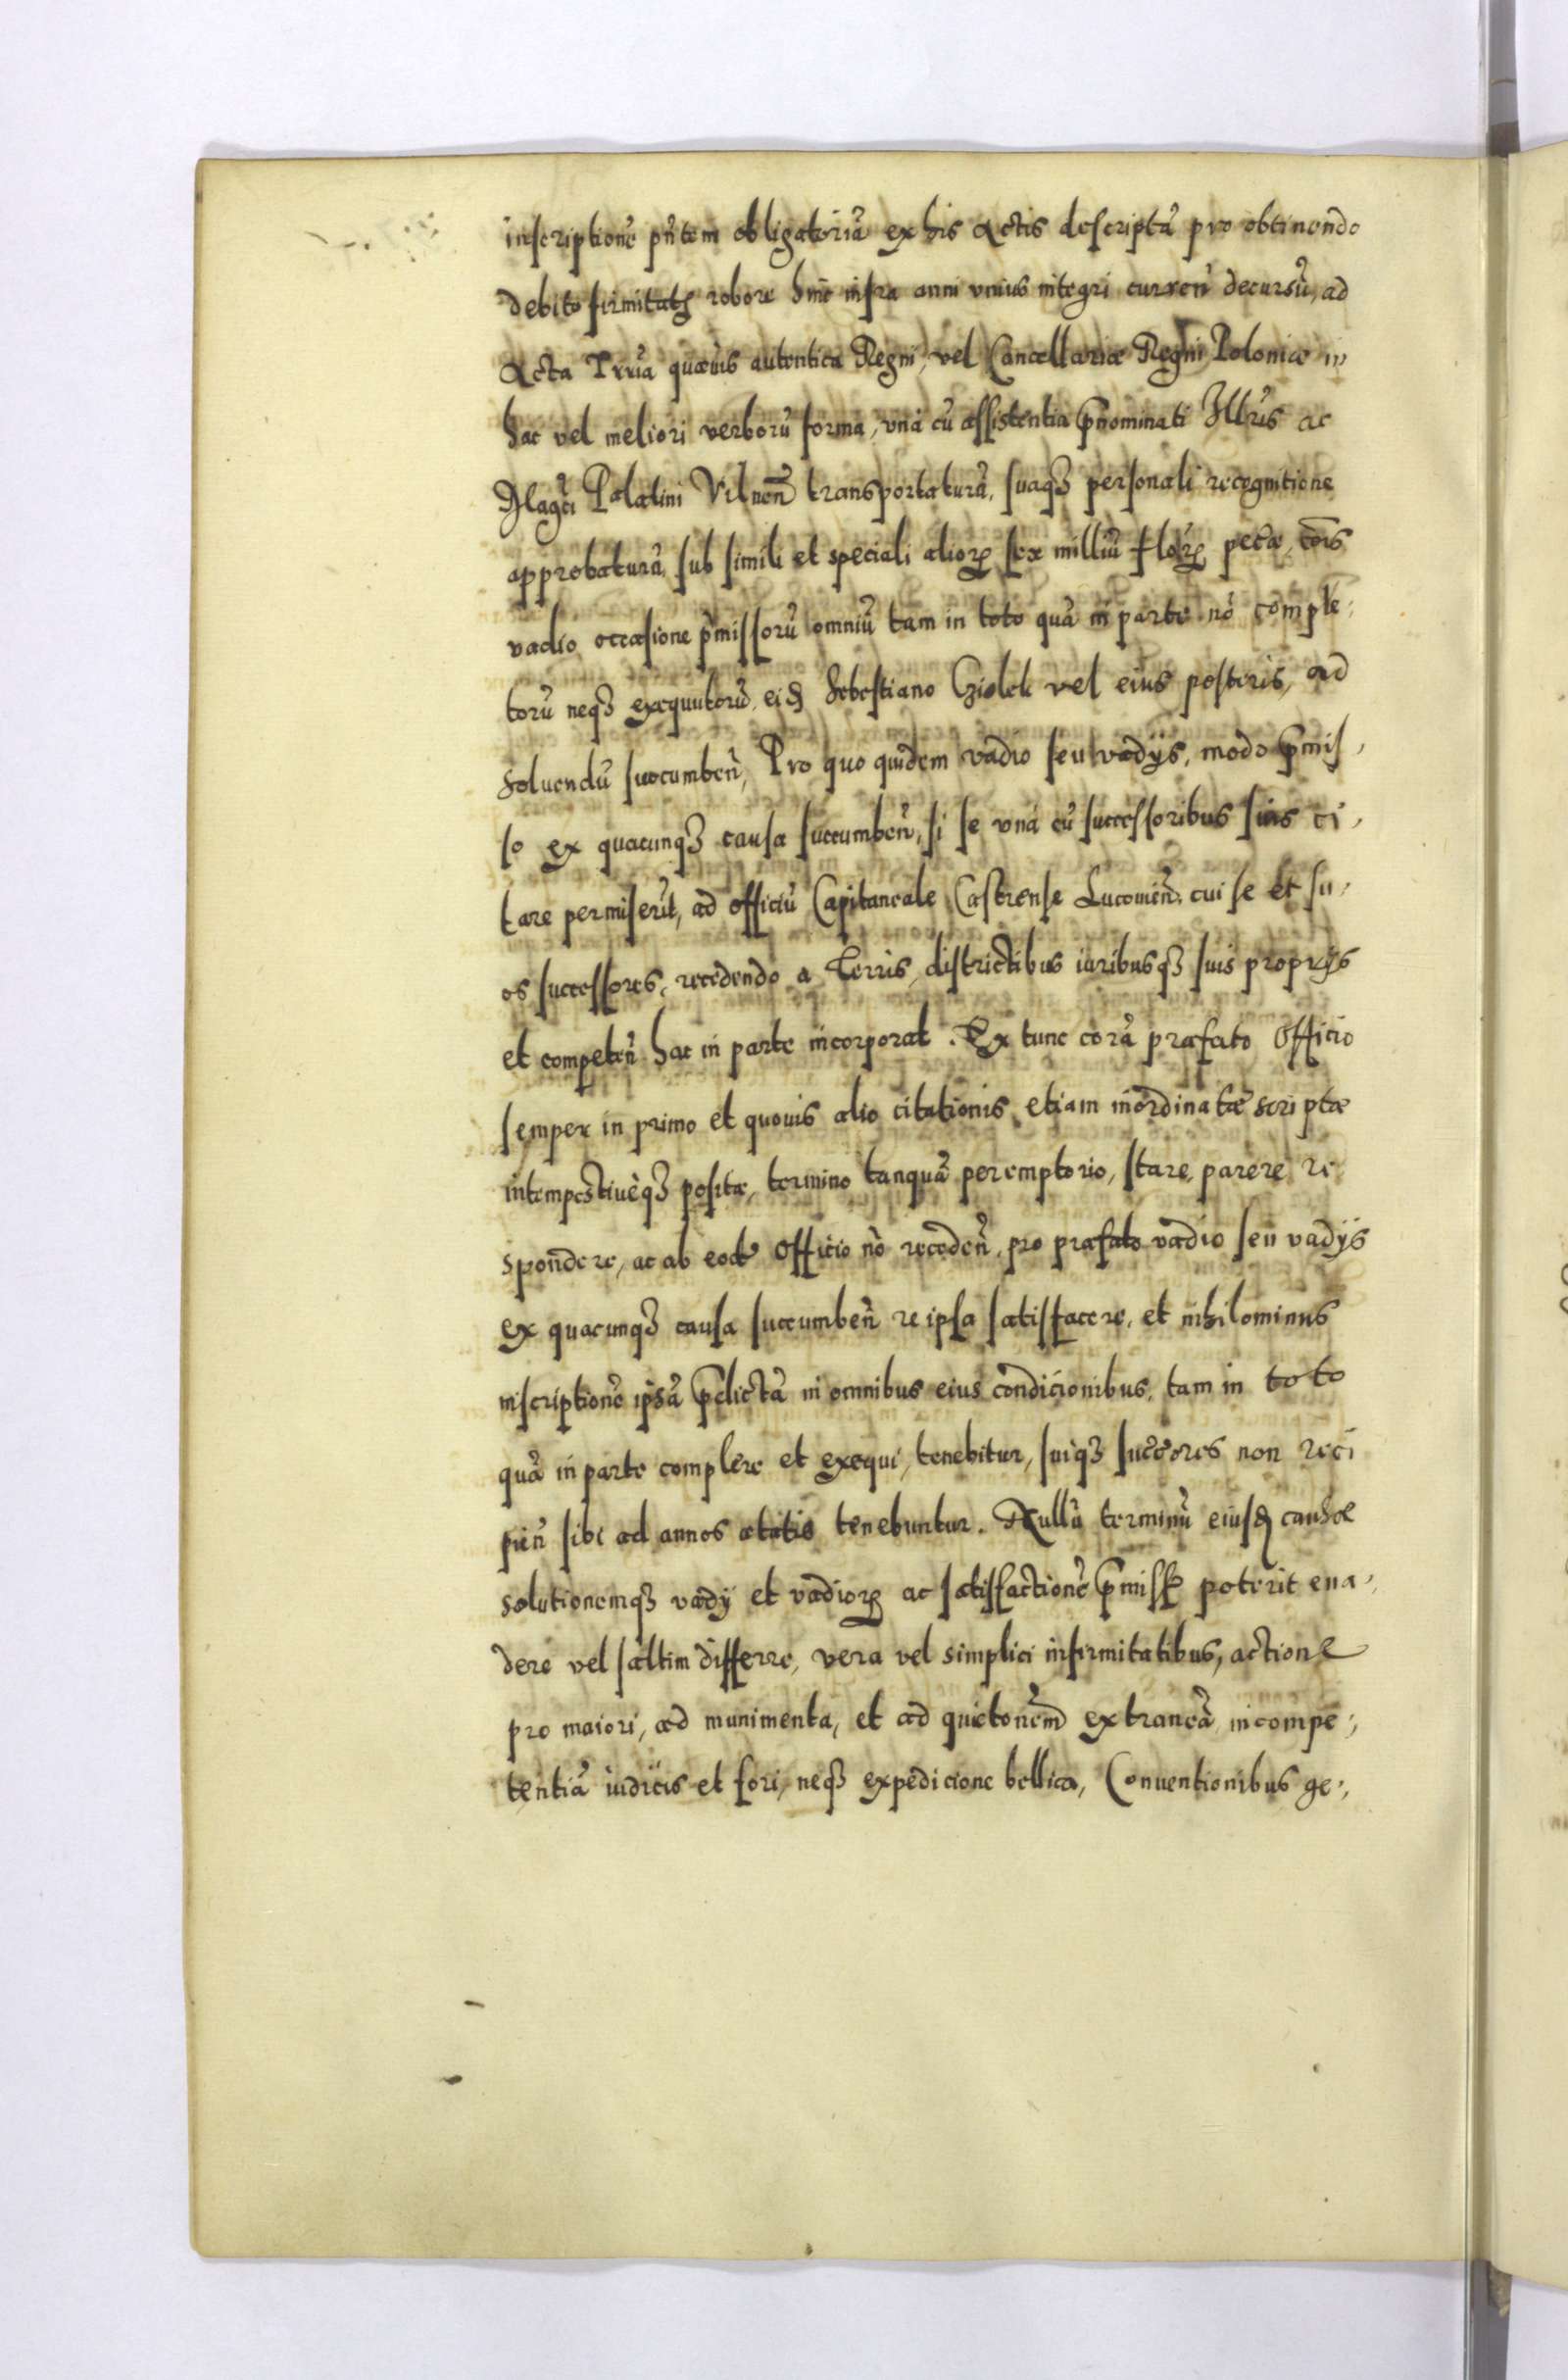 inscriptionē pñtem obligatoriā ex his Actis descriptā pro obtinendo
debito firmitatꝭ robore hinc infra anni vnius integri curren̄ decursū, ad
Acta Trr̃ia quæuis autentica Regni, vel Cancellariæ Regni Poloniæ in
hac vel meliori verborū forma, vnà cū assistentia p̄nominati Illr̃is ac
Magc̃i Palatini Vilnen̄ transportaturā, suaqꝫ personali recognitione
approbaturā, sub simili et speciali alioꝝ sex milliū floꝝ pec̃æ, to͠is
vadio occasione p̄missorū omniū tam in toto quā in parte nō comple:
torū neqꝫ exequutorū, eidꝫ Sebestiano Gziolek vel eius posteris, ad
soluendū succumben̄, Pro quo quidem vadio seu vadijs, modo p̄mis,
so ex quacunqꝫ causa succumben̄, si se vnà cū successoribus suis ci,
tare permiserit, ad officiū Capitaneale Castrense Lucouien̄. cui se et su,
os successores, recedendo a Terris, districtibus iuribusqꝫ suis proprijs
et competen̄ hac in parte incorporat. Ex tunc corā præfato Officio
semper in primo et quouis alio citationis etiam inordinatæ scriptæ
intempestiuèqꝫ positæ, termino tanquā peremptorio, stare, parere re
spondere, ac ab eodē Officio nō receden̄, pro præfato vadio seu vadijs
ex quacunqꝫ causa succumben̄ re ipsa satisfacere, et nihilominus
inscriptionē ipsā p̄dictā in omnibus eius condicionibus, tam in toto
quā in parte complere et exequi, tenebitur, suiqꝫ succ̃ores non reci
pien̄ sibi ad annos ætatis tenebuntur. Nullū terminū eiusdꝫ causæ
solutionemqꝫ vadij et vadioꝝ ac satisfactionē p̄missoꝝ poterit eua,
dere vel saltim differre, vera vel simplici infirmitatibus, actione
pro maiori, ad munimenta, et ad quietonē͠m extraneā, incompe:,
tentiā iudicis et fori, neqꝫ expedicione bellica, Conuentionibus ge:,